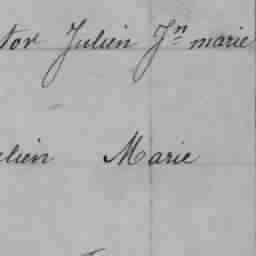 tor Julien Jn marie
elien Marie